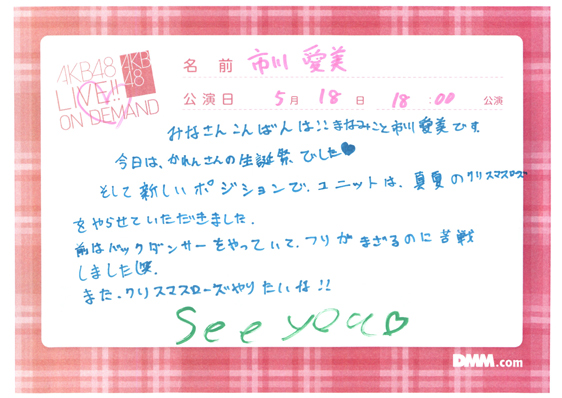 AKB48
LIVE!!
ON DEMAND
AKB
48
名前 市川 愛美
公演日 5月 18日 18:00 公演
みなさんこんばんは!! まなみこと市川愛美です.
今日は、かれんさんの生誕祭でした♥
そして新しいポジションで、ユニットは、真夏のクリスマスローズ
をやらせていただきました.
前はバックダンサーをやっていて、フリがまざるのに苦戦
しました笑.
また、クリスマスローズやりたいな!!
See you♡
DMM.com